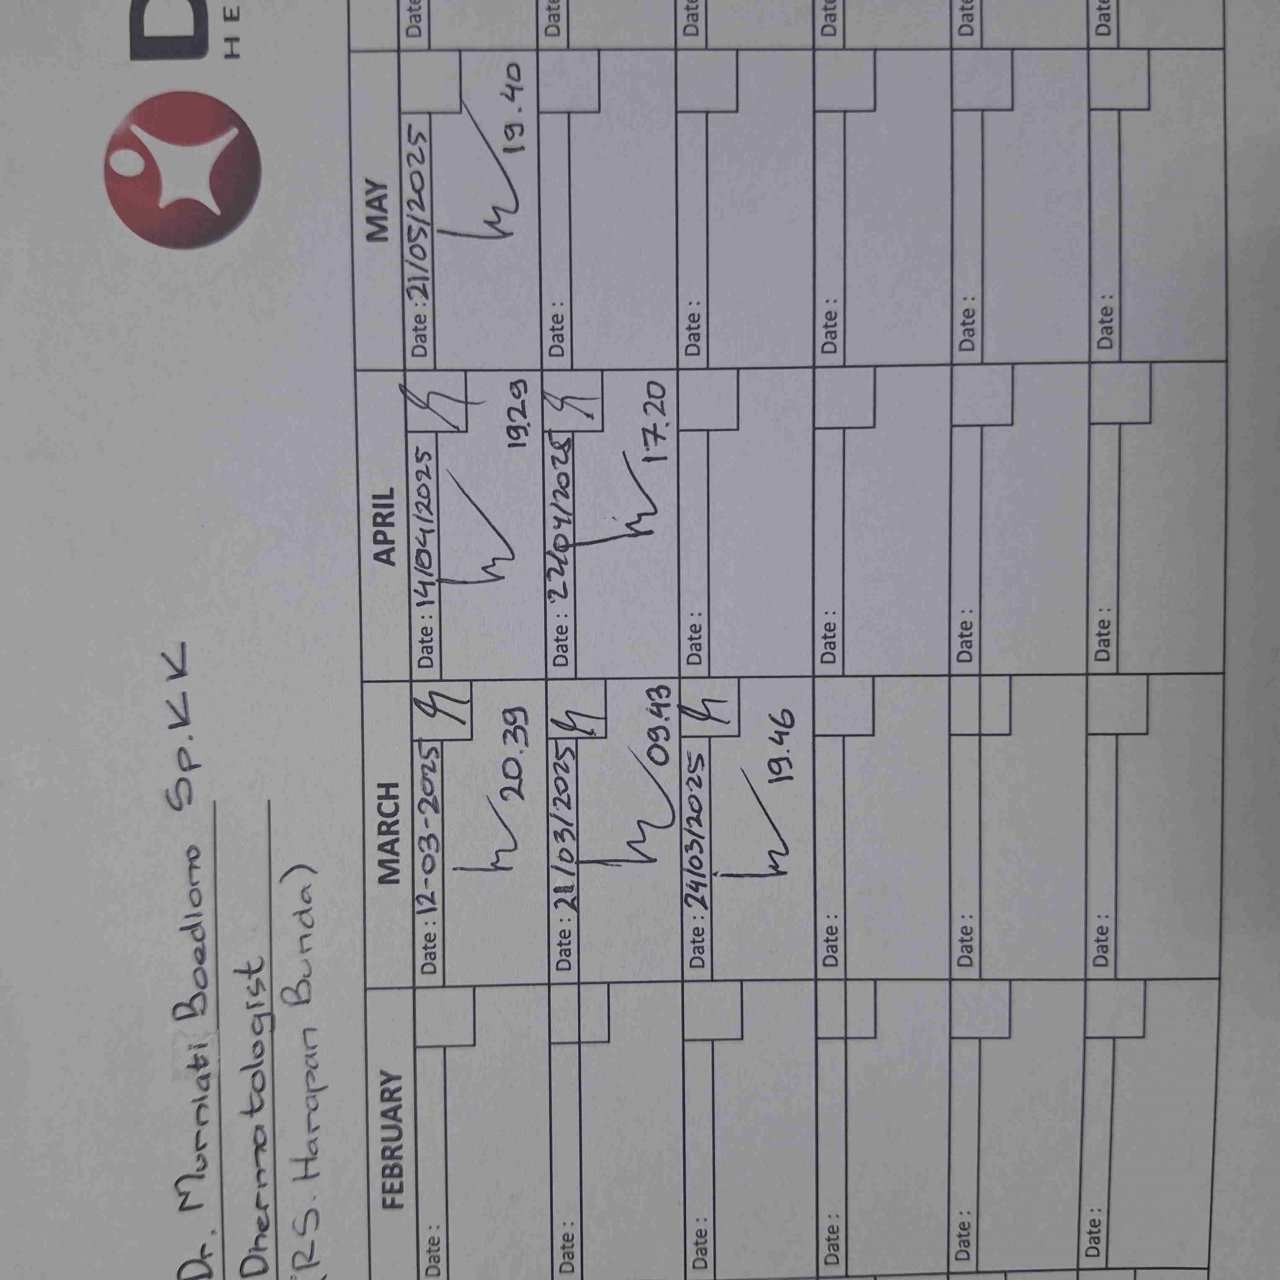 Dr. Murniati Boediono Sp.KK
Dhermatologist
(RS. Harapan Bunda)
D
HE
FEBRUARY MARCH APRIL MAY
Date : Date : 12-03-2025 Date : 14/04/2025 Date : 21/05/2025 Date
20.39 19.29 19.40
Date : Date : 21/03/2025 Date : 22/04/2025 Date : Date
09.43 17.20
Date : Date : 24/03/2025 Date : Date : Date
19.46
Date : Date : Date : Date : Date
Date : Date : Date : Date : Date
Date : Date : Date : Date : Date